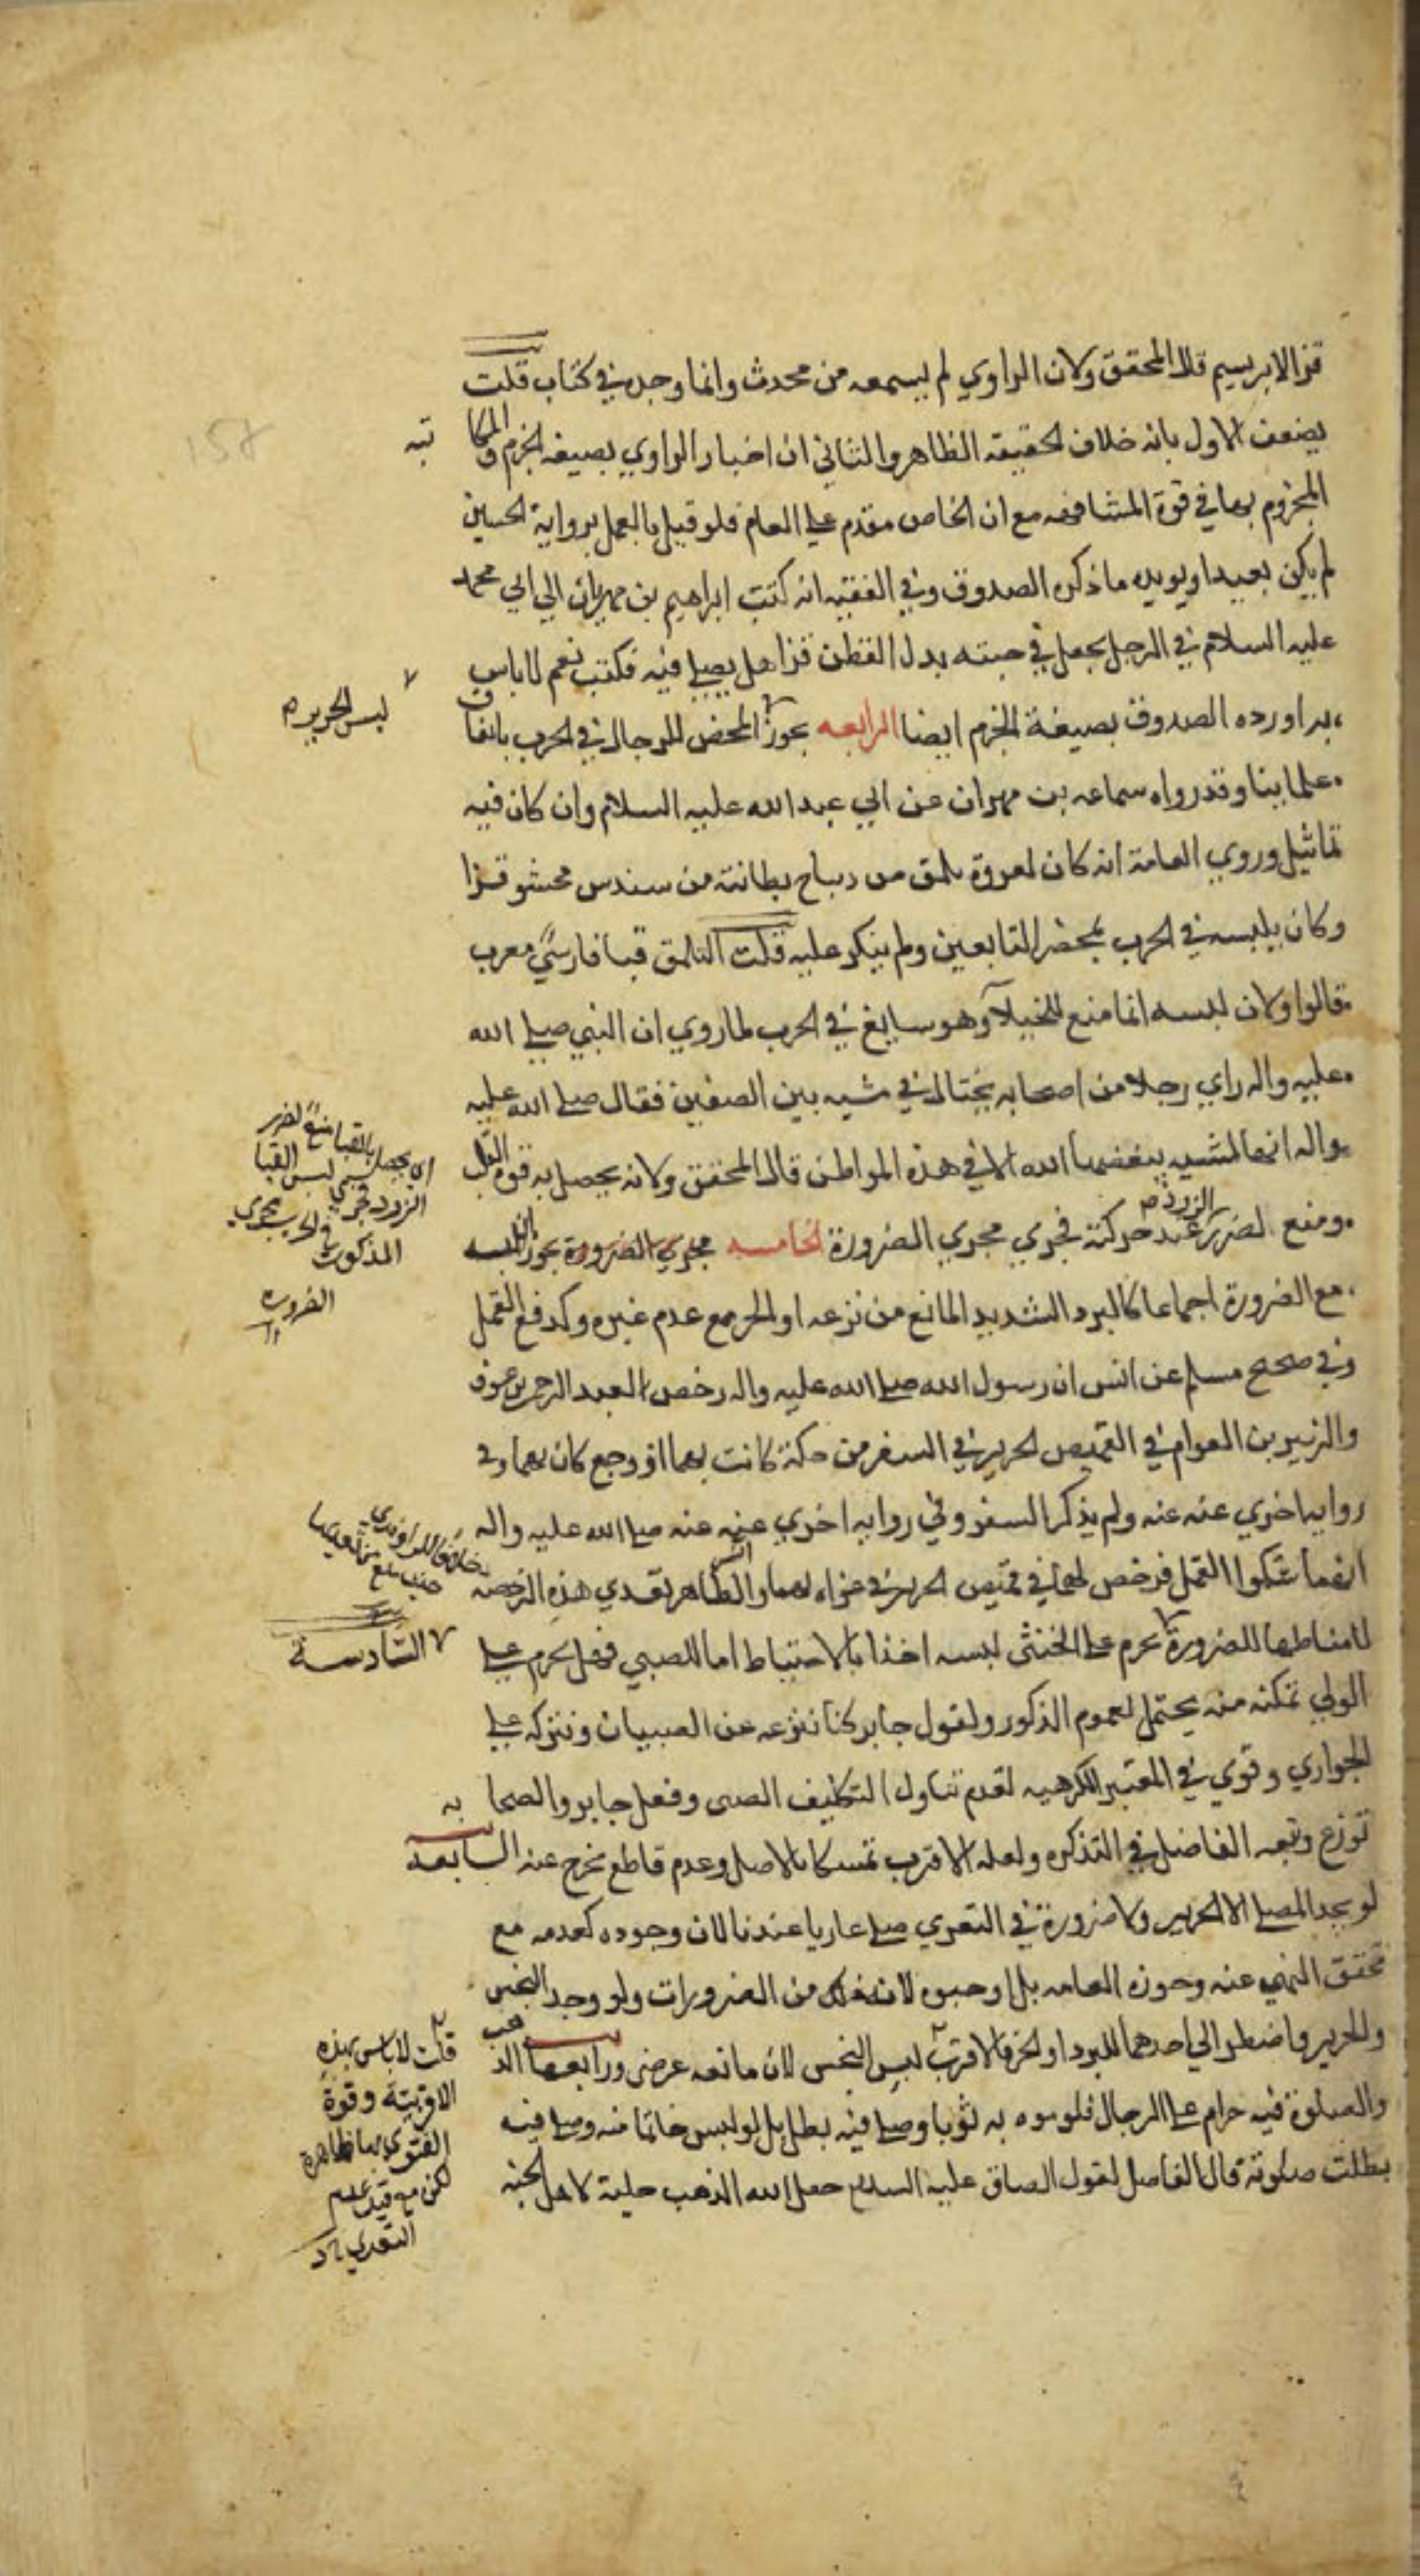 قز الابريسم قال المحقق ولان الراوي لم يسمعه من محدث وانما وجده في كتاب قلت
يضعف الاول بانه خلاف الحقيقه الظاهره والثاني ان اخبار الراوي بصيغه الجزم والمكا تبه
المجزوم بها في قوة المشافهه مع ان الخاص مقدم علي العام فلو قيل بالعمل برواية الحسين
لم يكن بعيدا ويويده ما ذكره الصدوق وفي الفقيه انه كتب ابراهيم بن مهزيار الي ابي محمد
عليه السلام في الرجل يجعل في جبته بدل القطن قزا هل يصلي فيه فكتب نعم لا باس
به اورده الصدوق بصيغة الجزم ايضا الرابعه يجوز المحض للرجال في الحرب باتفاق
لبس الحرير م
علماينا وقد رواه سماعه بن مهران عن ابي عبد الله عليه السلام وان كان فيه
تماثيل وروي العامة انه كان لعروة يلمق من ديباج بطانته من سندس محشو قزا
وكان يلبسه في الحرب بمحضر التابعين ولم ينكر عليه قلت اليلمق قبا فارسي معرب
قالوا ولان لبسه انما منع للخيلآ وهو سايغ في الحرب لما روي ان النبي صلي الله
عليه واله راي رجلا من اصحابه يختال في مشيه بين الصفين فقال صلي الله عليه
واله انها لمشيه يبغضها الله الا في هذه المواطن قال المحقق ولانه يحصل به قوة القلب
ومنع لضرر الزرد عند حركته فجري مجري الضرورة الخامسه مجري الضرورة يجوز لبسه
اي يحصل بالقبا منع لضرر
الزرد فجري لبس القبا
المذكور في الحرب مجري
الضروره
مع الضرورة اجماعا كالبرد الشديد المانع من نزعه او الحر مع عدم غيره وكدفع القمل
وفي صحيح مسلم عن انس ان رسول الله صلي الله عليه واله رخص لعبد الرحمن بن عوف
والزبير بن العوام في القميص الحرير في السفر من حكة كانت بهما او وجع كان بهما وفي
روايه اخري عنه عنه ولم يذكر السفر وفي روايه اخري عنه عنه صلي الله عليه واله
انهما شكوا القمل فرخص لهما في قميص الحرير في غزاه لهما والظاهر تعدي هذه الرخصه
خلافا للراوندي
لامناطها للضرورة يحرم علي الخنثي لبسه اخذا بالاحتياط اما للصبي فهل يحرم علي
السادسة
الولي تمكنه منه يحتمل لعموم الذكور ولقول جابر كنا ننزعه عن الصبيان ونتركه علي
الجواري وقوي في المعتبر الكرهيه لعدم تناول التكليف الصبي وفعل جابر والصحا به
تورع وتبعه الفاضل في التذكره ولعله الاقرب تمسكا بالاصل وعدم قاطع يخرج عنه السابعه
لو يجد المصلي الا الحرير ولا ضرورة في التعري صلي عاريا عندنا لان وجوده كعدمه مع
تحقق النهي عنه وجوزه العامه بل اوجبوه لان ذلك من الضرورات ولو وجد النجس
والحرير واضطر الي احدهما للبرد او الحر فالاقرب لبس النجس لان مانعه عرضي ورابعها الذهب
والصلوة فيه حرام علي الرجال فلو موه به ثوبا وصلي فيه بطل بل لو لبس خاتما منه وصلي فيه
بطلت صلوته قال الفاضل لقول الصادق عليه السلام جعل الله الذهب حلية لاهل الجنه
قلت لا باس بهذه
الاقربيته وقوة
الفتوي بها ظاهرة
لكن مع قيد عدم
التعدي